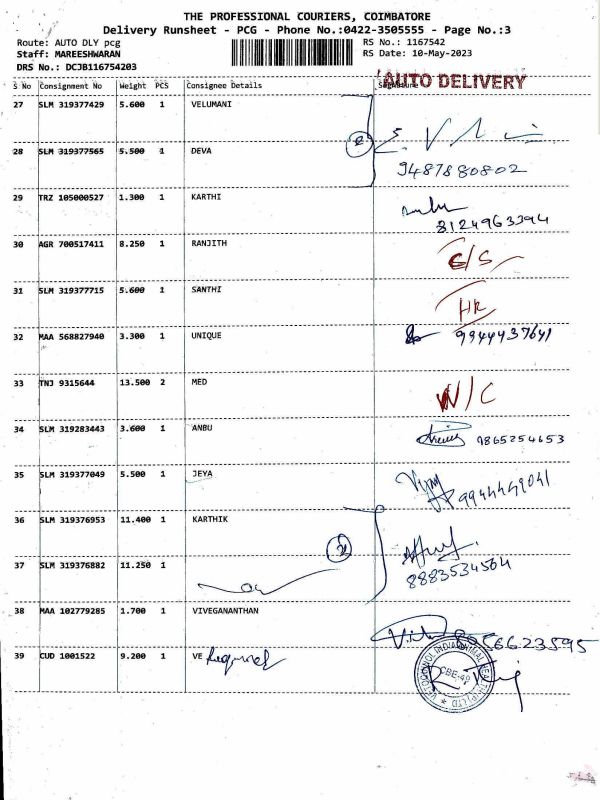 THE PROFESSIONAL COURIERS, COIMBATORE
Delivery Runsheet - PCG - Phone No.:0422-3505555 - Page No.:3
Route: AUTO DLY pcg RS No.: 1167542
Staff: MAREESHWARAN RS Date: 10-May-2023
DRS No.: DCJB116754203
AUTO DELIVERY
S No Consignment No Weight PCS Consignee Details Signature
27 SLM 319377429 5.600 1 VELUMANI
28 SLM 319377565 5.500 1 DEVA
9487880802
29 TRZ 105000527 1.300 1 KARTHI
8124963394
30 AGR 700517411 8.250 1 RANJITH
31 SLM 319377715 5.600 1 SANTHI
HR
32 MAA 568827940 3.300 1 UNIQUE 9944437641
33 TNJ 9315644 13.500 2 MED N/C
34 SLM 319283443 3.600 1 ANBU 9865254653
35 SLM 319377049 5.500 1 JEYA Vijay 9944449041
36 SLM 319376953 11.400 1 KARTHIK
37 SLM 319376882 11.250 1 8883534564
38 MAA 102779285 1.700 1 VIVEGANANTHAN
39 CUD 1001522 9.200 1 VE
CBE-49